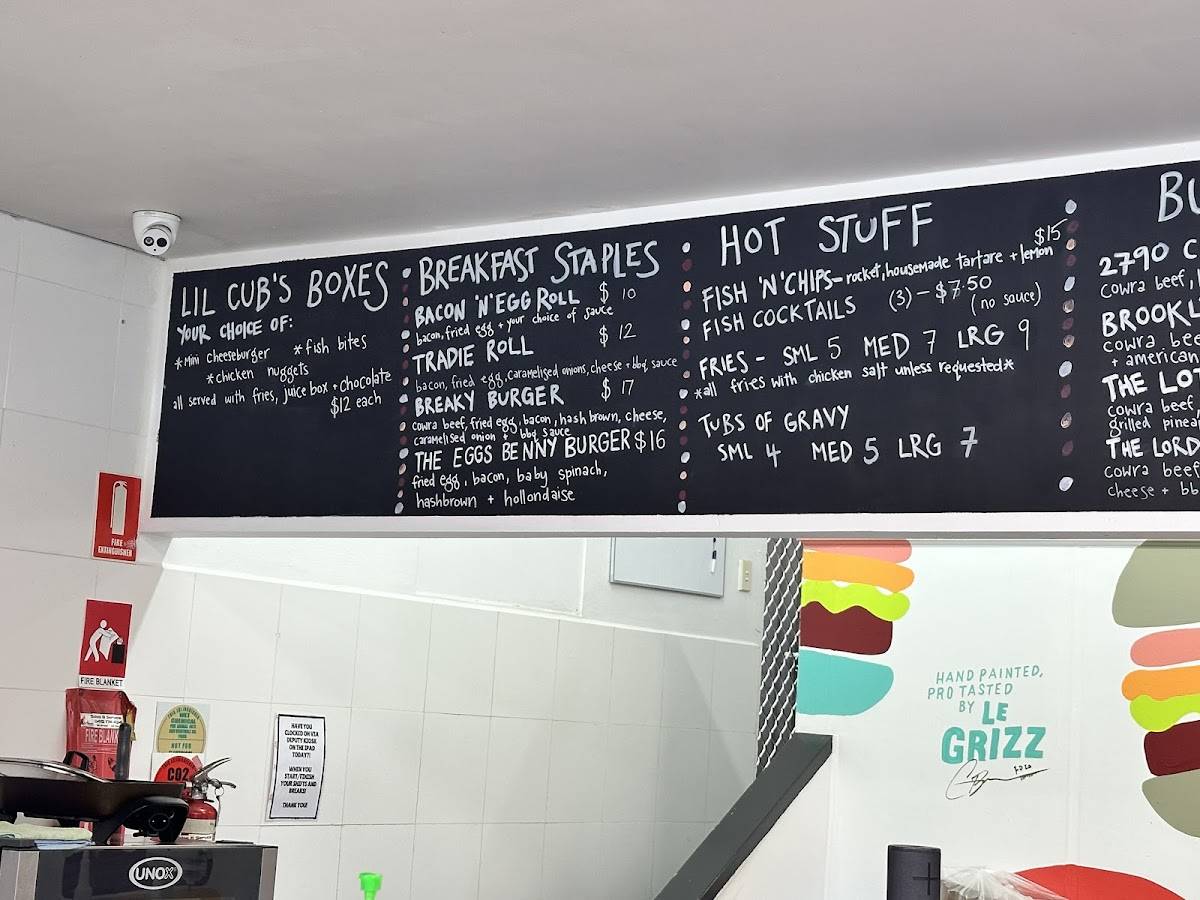 LIL CUB'S BOXES
YOUR CHOICE OF:
*Mini cheeseburger *fish bites
*chicken nuggets
all served with fries, juice box + chocolate
$12 each
BREAKFAST STAPLES
BACON 'N' EGG ROLL $ 10
bacon, fried egg + your choice of sauce
TRADIE ROLL $ 12
bacon, fried egg, caramelised onions, cheese + bbq sauce
BREAKY BURGER $ 17
cowra beef, fried egg, bacon, hash brown, cheese,
caramelised onion + bbq sauce
THE EGGS BENNY BURGER $16
fried egg, bacon, baby spinach,
hashbrown + hollondaise
HOT STUFF
$15
FISH 'N' CHIPS - rocket, housemade tartare + lemon
FISH COCKTAILS (3) - $7.50
(no sauce)
FRIES - SML 5 MED 7 LRG 9
*all fries with chicken salt unless requested*
TUBS OF GRAVY
SML 4 MED 5 LRG 7
BU
2790 C
cowra beef,
BROOKL
cowra bee
+ american
THE LOT
cowra beef
grilled pinea
THE LORD
cowra beef
cheese + bb
FIRE
EXTINGUISHER
FIRE BLANKET
FIRE BLANK
NOT FOR
CO2
HAVE YOU
CLOCKED ON VIA
DEPUTY KIOSK
ON THE IPAD
TODAY?!
WHEN YOU
START/FINISH
YOUR SHIFTS AND
BREAKS!
THANK YOU!
UNOX
HAND PAINTED,
PRO TASTED
BY LE
GRIZZ